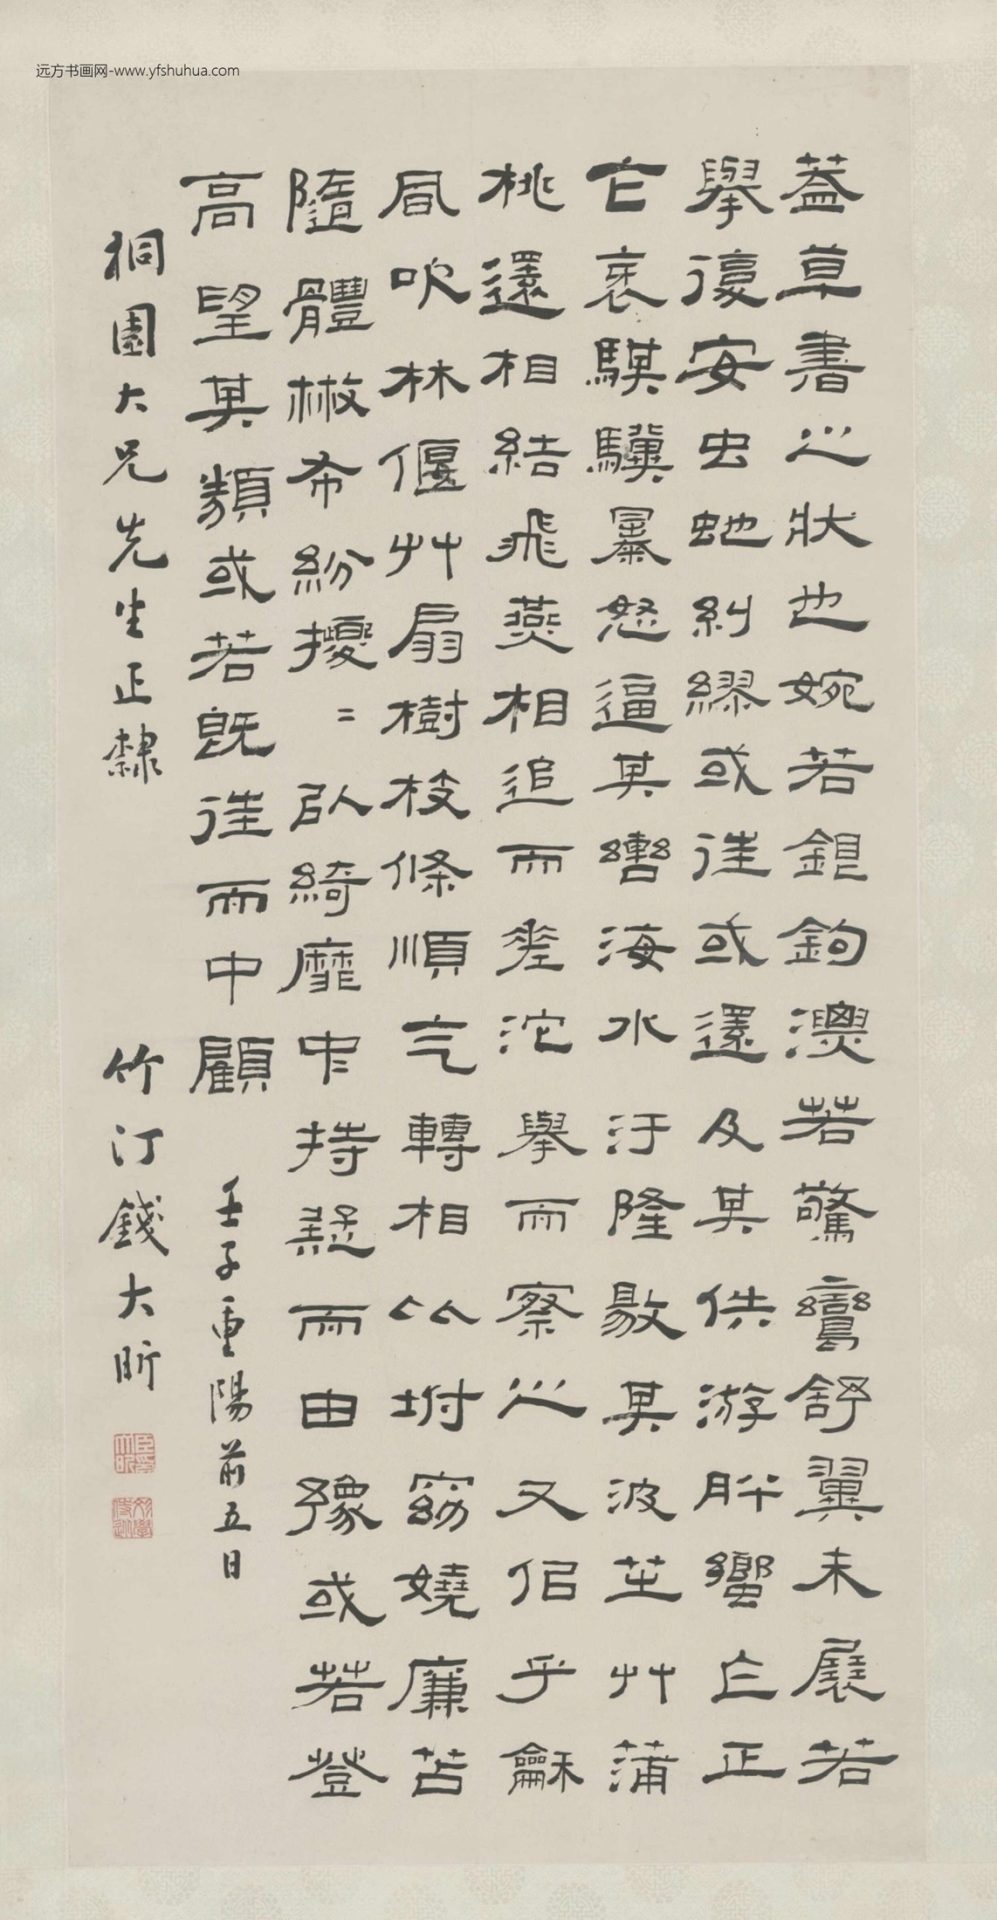 远方书画网-www.yfshuhua.com
蓋草書之狀也婉若銀鉤漂若驚鸞舒翼未展若
舉復安虫虵糾繆或往或還及其佚游肸蠁乍正
乍衺騏驥暴怒逼其轡海水汙隆敭其波芝艸蒲
桃還相結飛燕相追而差沱舉而察之又佀乎龢
風吹林偃艸扇樹枝條順气轉相比坿窈嬈廉苫
隨體散布紛擾〻以綺靡中持疑而由豫或若登
高望其類或若既往而中顧
壬子重陽前五日
桐園大兄先生正隸
竹汀錢大昕